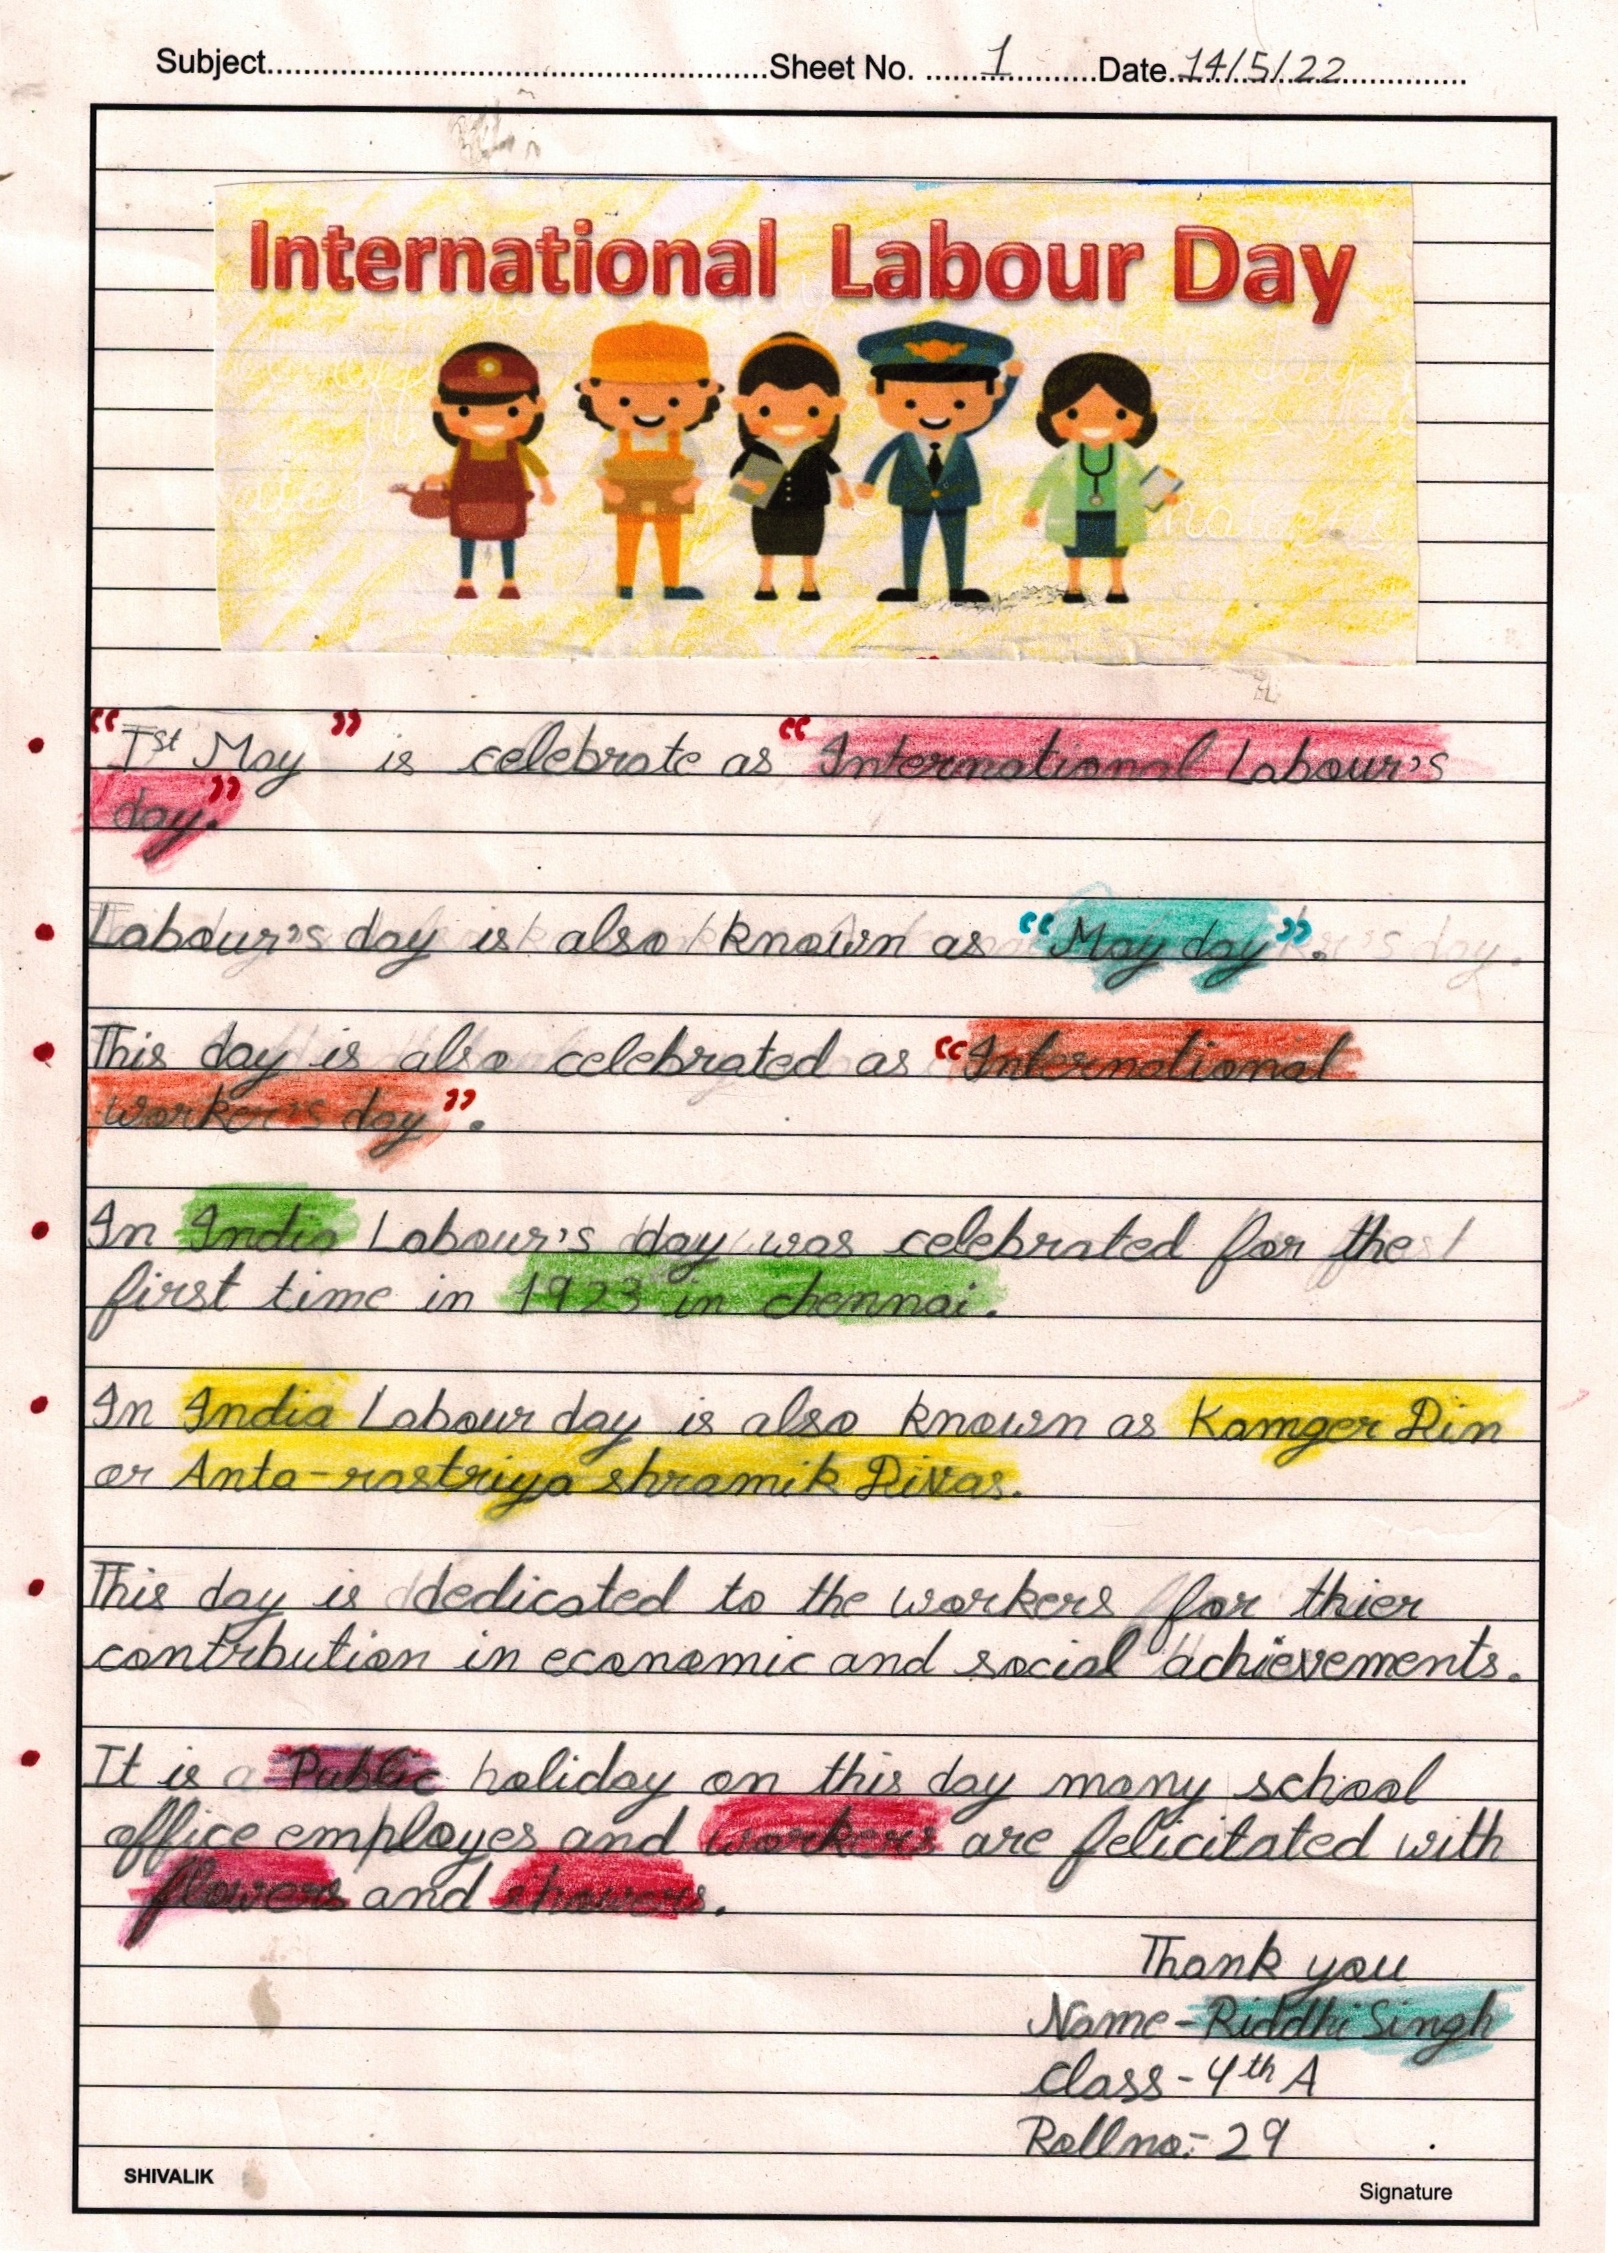 Subject Sheet No. 1 Date 14/5/22
International Labour Day
“Ist May” is celebrate as “International Labour's
day.”
Labour's day is also known as “May day”.
This day is also celebrated as “International
worker's day”.
In India Labour's day was celebrated for the
first time in 1923 in chennai.
In India Labour day is also known as Kamger Din
or Anta-rastriya shramik Divas.
This day is dedicated to the workers for thier
contrbution in economic and social achievements.
It is a Public holiday on this day many school
office employes and workers are felicitated with
flowers and showers.
Thank you
Name-Riddhi Singh
Class-4th A
Rollno:-29
SHIVALIK
Signature